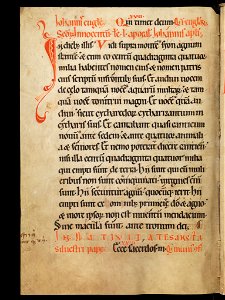 Johannis euglę. Qui timet deum.
Scōꝝ Innocentū. Johannis apli.
In dieb; illis. Vidi supra montē syon agnum
stantē & cum eo centū quadraginta quattuor
milia habentes nomen eius & nomen patris
eius scriptū in frontib; suis. Et audiui uocem
de cęlo tamquā uocē aquarū multarū. & tam
quā uocē tonitrui magni. Et uocē quā au
diui sicut cytharędorū cytharizantium in
cytharis suis. Et cantabant quasi canticum
nouū ante sedem & ante quattuor animali
a & seniores. Et nemo poterat dicere canticū
nisi illa centū quadraginta quattuor milia
qui empti sunt de terra. Hi sunt qui cum muli
eribus non sunt coinquinati. uirgines enim
sunt. Hi secuntur agnū quocūq; ierit. Hi
empti sunt ex omnib; primitię dō & agno
& in ore ipsoꝝ non est inuentū mendacium.
Sine macula sunt ante tronum dei.
SANCTI
siluestri pape. Ecce sacerdos m